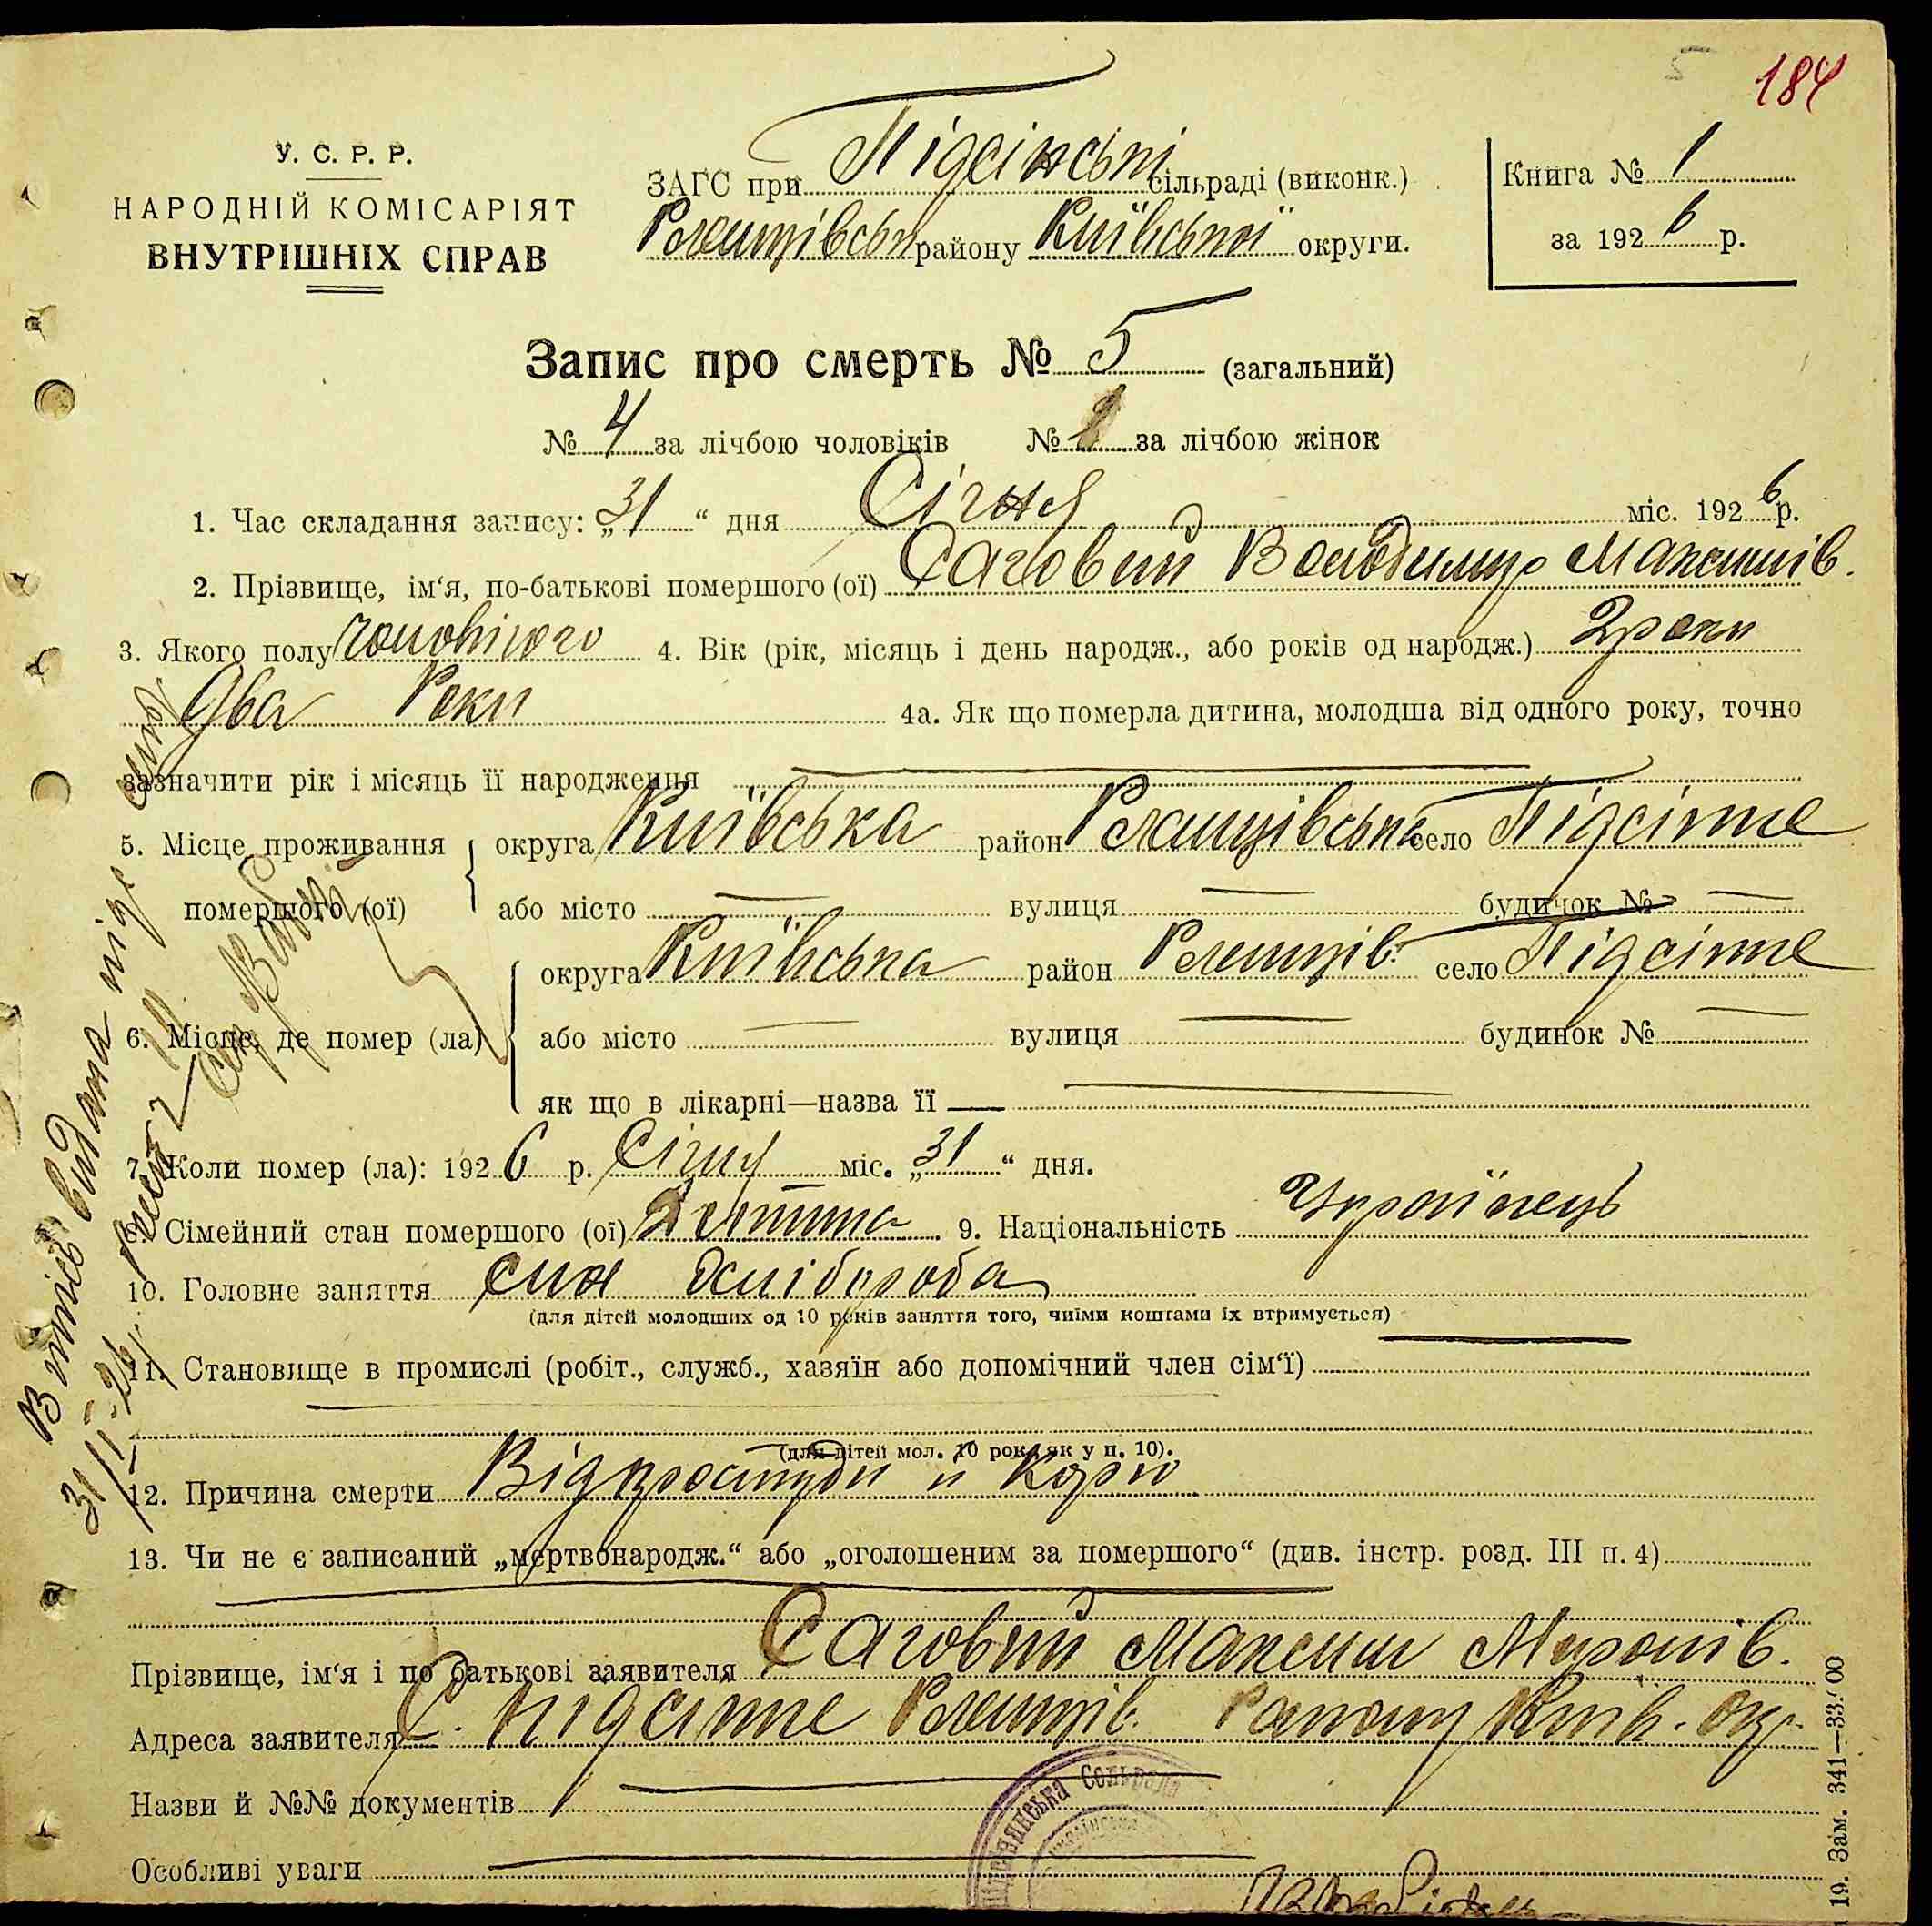 5 184
У. С. Р. Р.
НАРОДНІЙ КОМІСАРІЯТ
ВНУТРІШНІХ СПРАВ
ЗАГС при Підсінські сільраді (виконк.)
району Київської округи.
Книга № 1
за 1926 р.
Запис про смерть № 5 (загальний)
№ 4 за лічбою чоловіків № за лічбою жінок
1. Час складання запису: „31“ дня Січня міс. 1926 р.
2. Прізвище, ім‘я, по-батькові помершого (ої) Саговий Володимир Максимів.
3. Якого полу чоловічого 4. Вік (рік, місяць і день народж., або років од народж.) 2 роки
Два Роки 4а. Як що померла дитина, молодша від одного року, точно
зазначити рік і місяць її народження
5. Місце проживання помершого (ої)
округа Київська район село Підсінне
або місто — вулиця — будинок № —
6. Місце, де помер (ла)
округа Київська район село Підсінне
або місто — вулиця — будинок № —
як що в лікарні—назва її —
7. Коли помер (ла): 1926 р. Січня міс. „31“ дня.
8. Сімейний стан помершого (ої) Дитина 9. Національність Українець
10. Головне заняття син хлібороба
(для дітей молодших од 10 років заняття того, чиїми коштами їх втримується)
11. Становище в промислі (робіт., служб., хазяїн або допомічний член сім‘ї)
(для дітей мол. 10 рок. як у п. 10).
12. Причина смерти Від простуди и Корю
13. Чи не є записаний „мертвонародж.“ або „оголошеним за помершого“ (див. інстр. розд. III п. 4)
Прізвище, ім‘я і по батькові заявителя Саговий Максим Миронів.
Адреса заявителя С. підсінне Району Київ. окр.
Назви й №№ документів
Особливі уваги
Витпісь видана під
31/I-26
Сельрада
19. Зам. 341—33